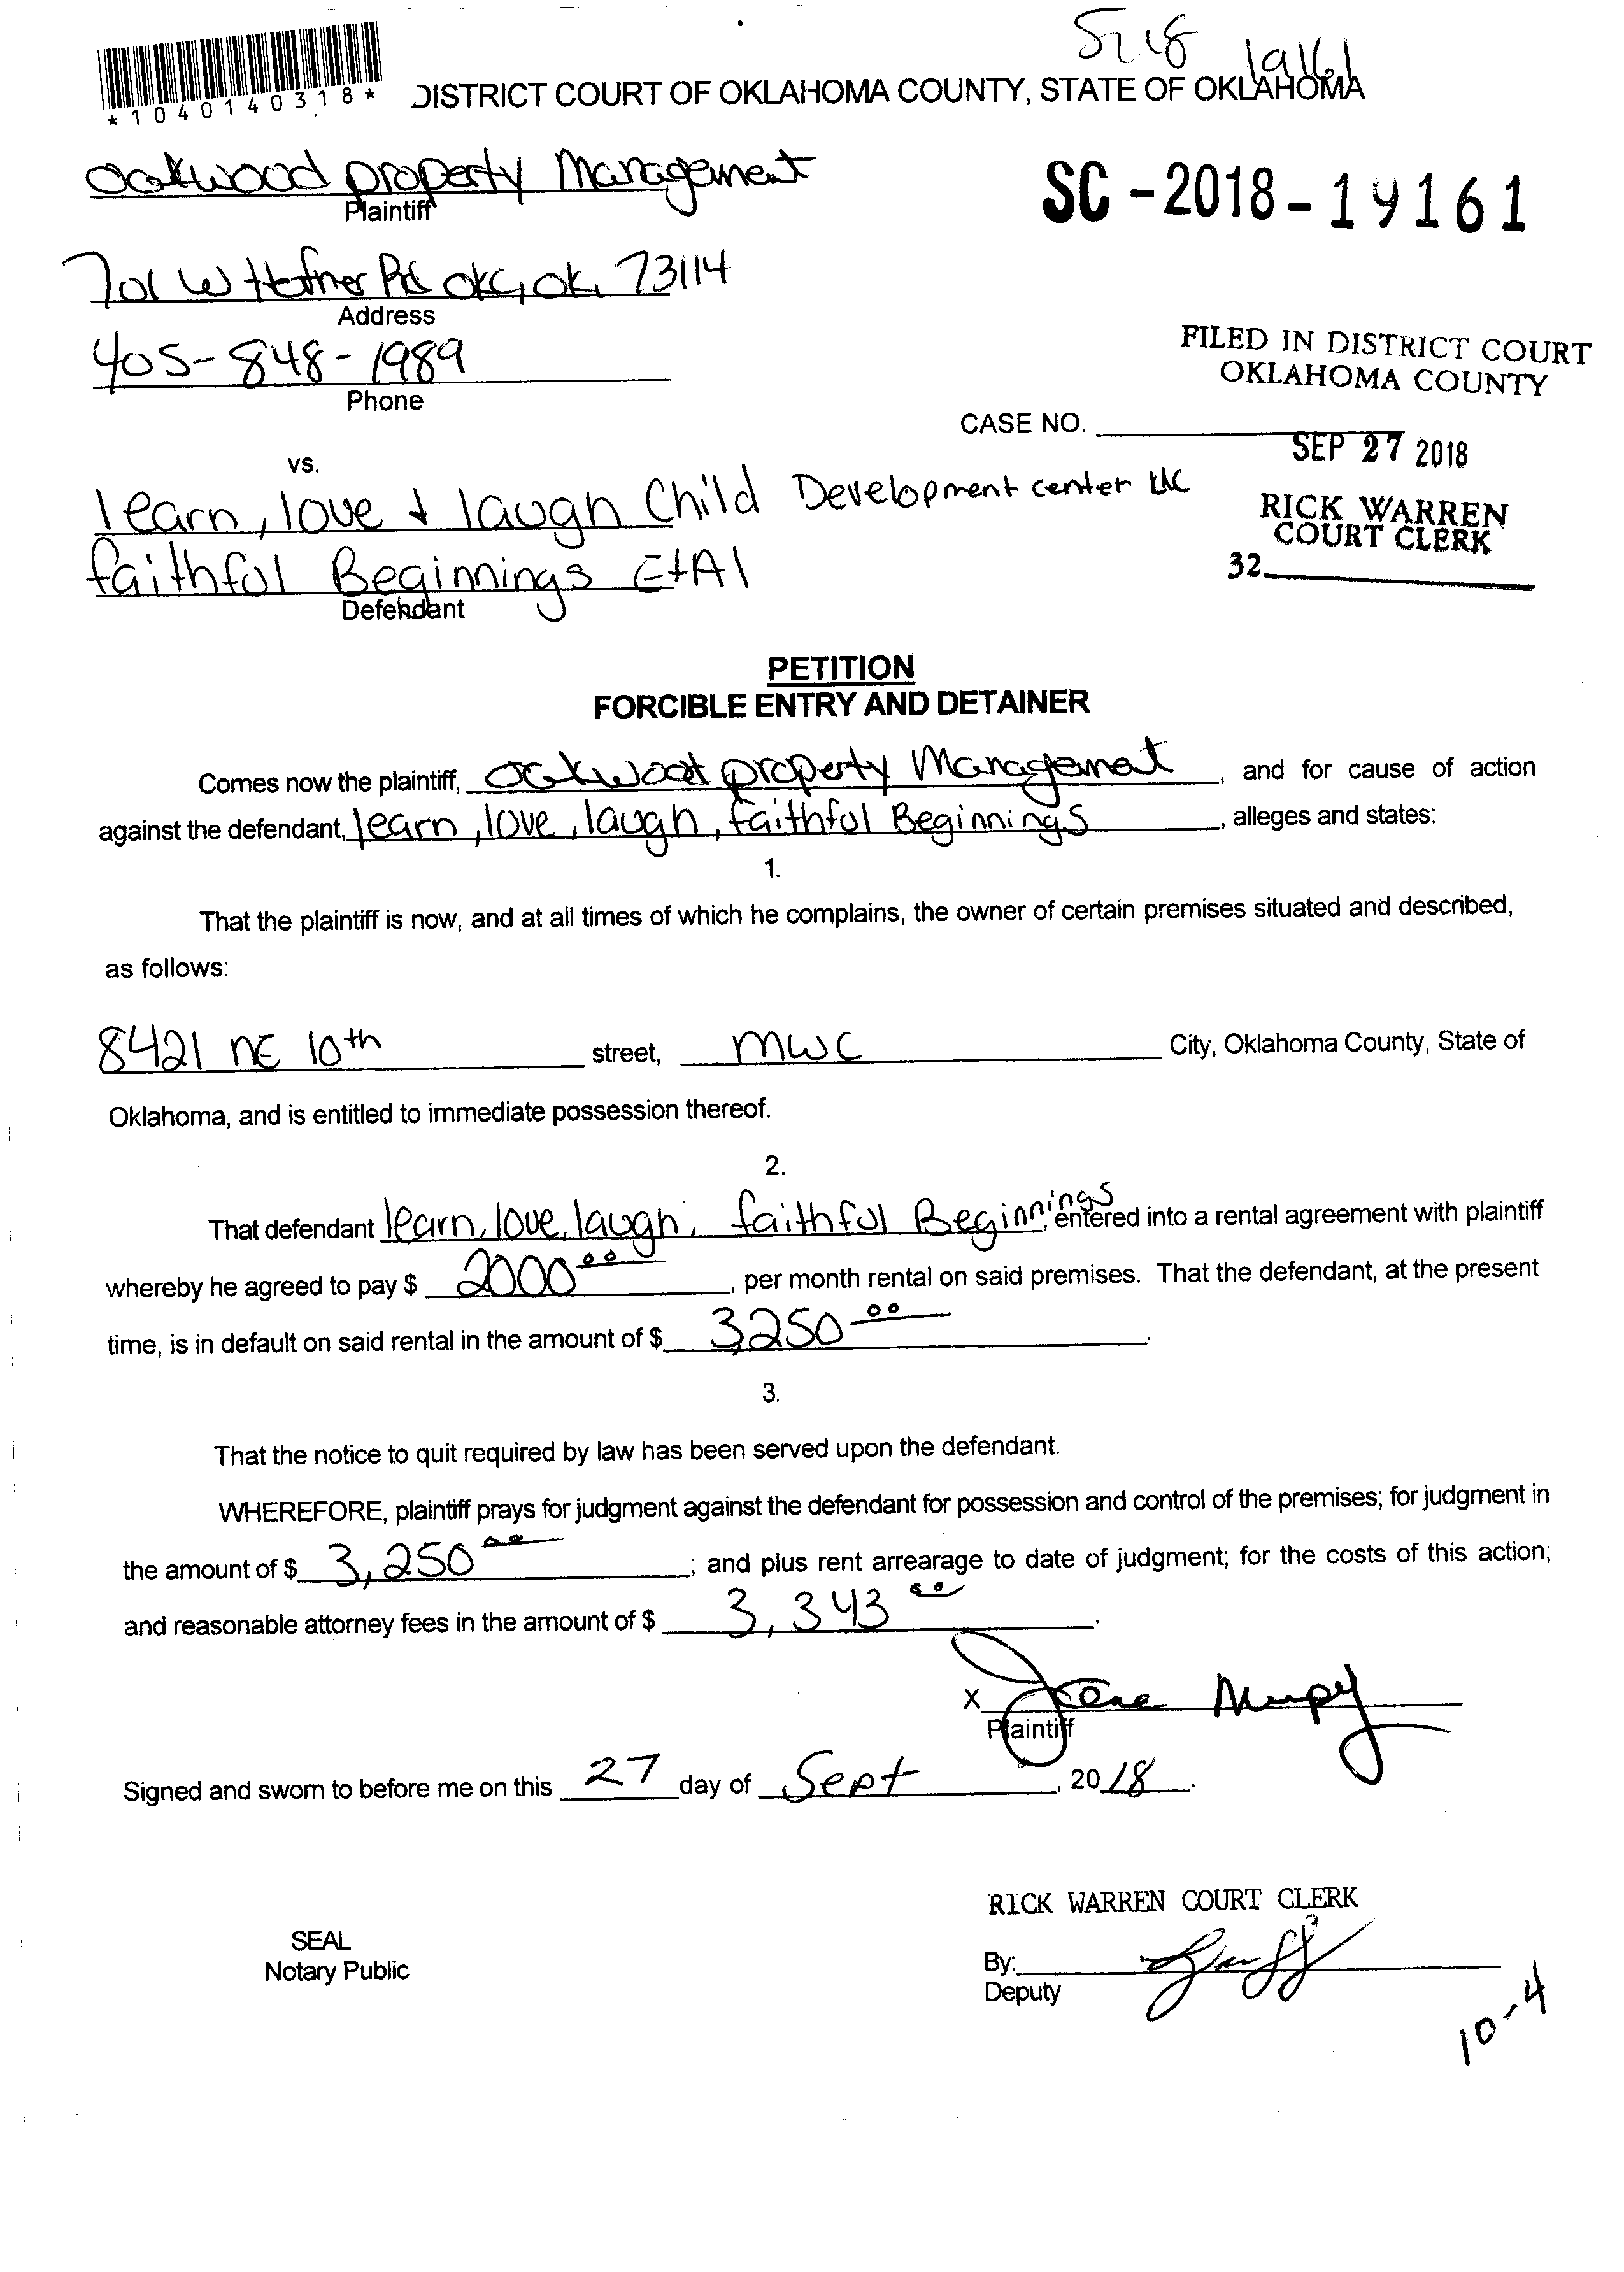 5218 19161
*1040140318*
DISTRICT COURT OF OKLAHOMA COUNTY, STATE OF OKLAHOMA
Oakwood property Management
Plaintiff
SC-2018-19161
701 W Hefner Rd OKC, OK. 73114
Address
405-848-1989
Phone
FILED IN DISTRICT COURT
OKLAHOMA COUNTY
CASE NO.
SEP 27 2018
vs.
learn, love + laugh Child Development center LLC
RICK WARREN
COURT CLERK
32
faithful Beginnings EtAl
Defendant
PETITION
FORCIBLE ENTRY AND DETAINER
Comes now the plaintiff, Oakwood property Management, and for cause of action
against the defendant, learn, love, laugh, faithful Beginnings, alleges and states:
1.
That the plaintiff is now, and at all times of which he complains, the owner of certain premises situated and described,
as follows:
8421 NE 10th street, MWC City, Oklahoma County, State of
Oklahoma, and is entitled to immediate possession thereof.
2.
That defendant learn, love, laugh, faithful Beginnings, entered into a rental agreement with plaintiff
whereby he agreed to pay $ 2000 00, per month rental on said premises. That the defendant, at the present
time, is in default on said rental in the amount of $ 3,250 00.
3.
That the notice to quit required by law has been served upon the defendant.
WHEREFORE, plaintiff prays for judgment against the defendant for possession and control of the premises; for judgment in
the amount of $ 3,250 00; and plus rent arrearage to date of judgment; for the costs of this action;
and reasonable attorney fees in the amount of $ 3,343 00.
X
Plaintiff
Signed and sworn to before me on this 27 day of Sept, 2018.
RICK WARREN COURT CLERK
SEAL
Notary Public
By:
Deputy
10-4